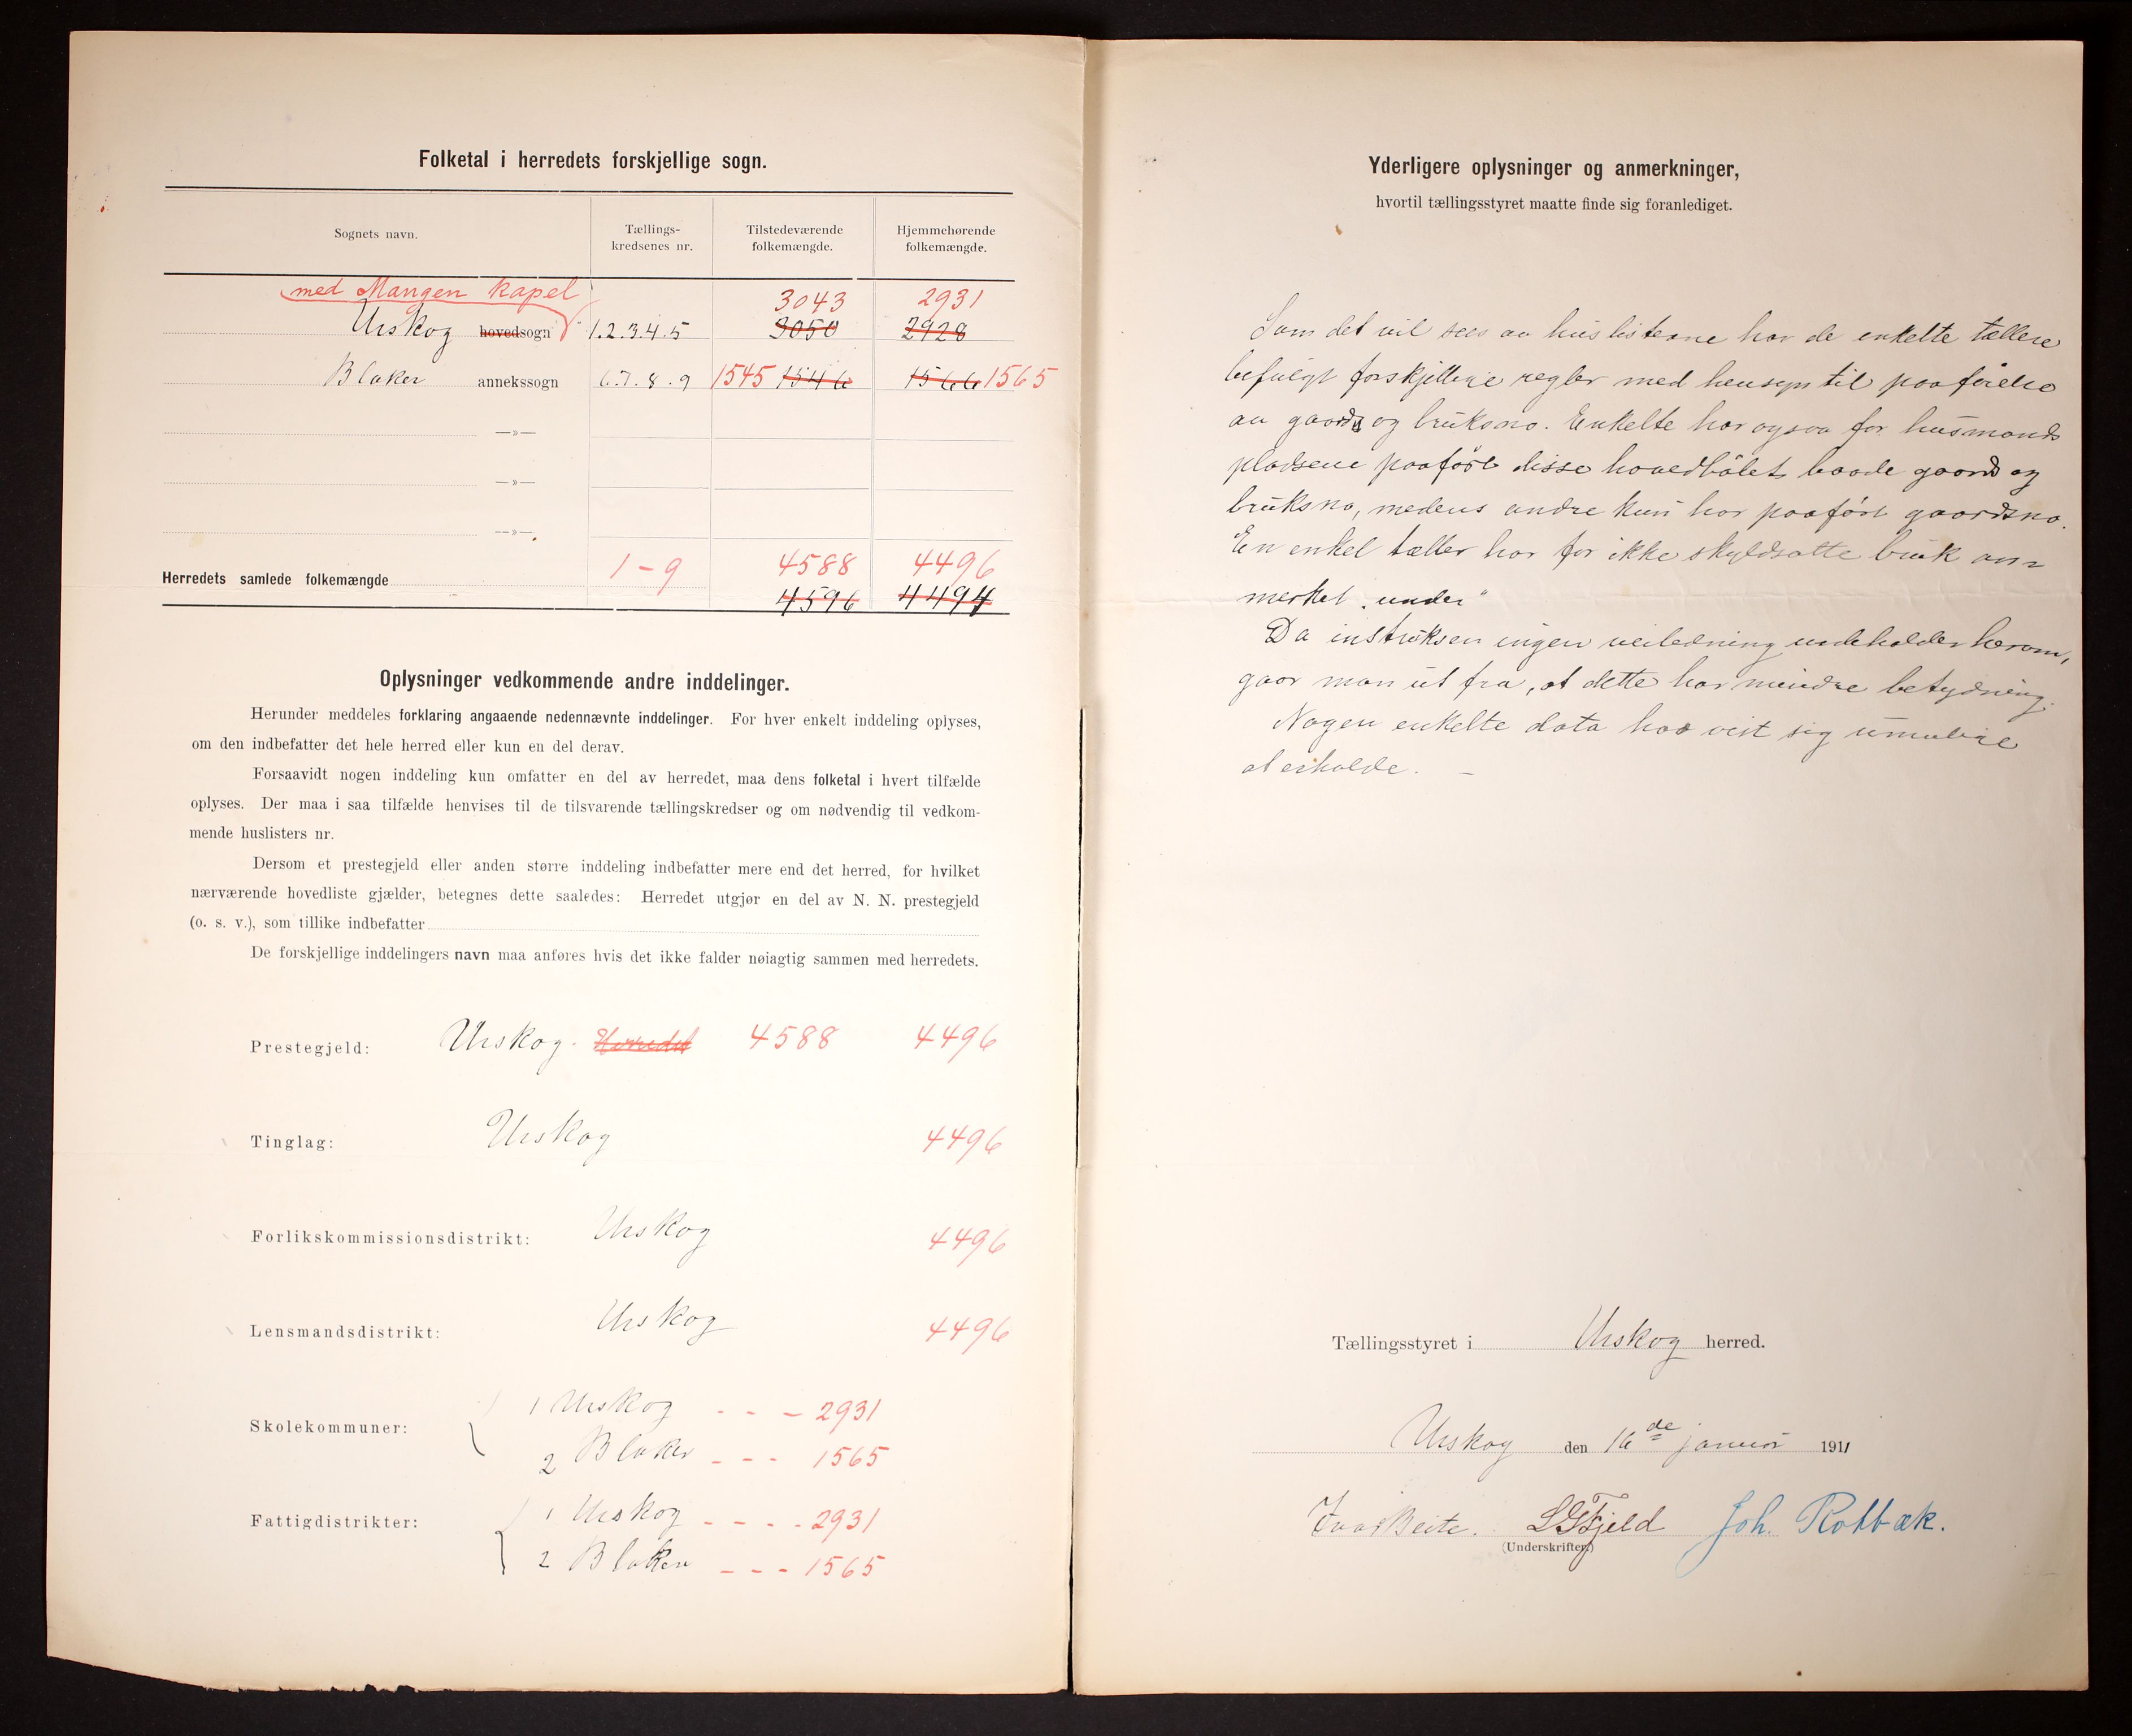 Folketal i herredets forskjellige sogn.
Sognets navn.
Tællings-
kredsenes nr.
Tilstedeværende
folkemængde.
Hjemmehørende
folkemængde.
med Mangen kapel
3043 2931
Urskog hovedsogn 1.2.3.4.5 3050 2928
Blaker annekssogn 6.7.8.9 1545 1546 1566 1565
—»—
—»—
—»—
1-9 4588 4496
Herredets samlede folkemængde
4596 4494
Oplysninger vedkommende andre inddelinger.
Herunder meddeles forklaring angaaende nedennævnte inddelinger. For hver enkelt inddeling oplyses,
om den indbefatter det hele herred eller kun en del derav.
Forsaavidt nogen inddeling kun omfatter en del av herredet, maa dens folketal i hvert tilfælde
oplyses. Der maa i saa tilfælde henvises til de tilsvarende tællingskredser og om nødvendig til vedkom-
mende huslisters nr.
Dersom et prestegjeld eller anden større inddeling indbefatter mere end det herred, for hvilket
nærværende hovedliste gjælder, betegnes dette saaledes: Herredet utgjør en del av N. N. prestegjeld
(o. s. v.), som tillike indbefatter
De forskjellige inddelingers navn maa anføres hvis det ikke falder nøiagtig sammen med herredets.
Prestegjeld: Urskog. Herredet 4588 4496
Tinglag: Urskog 4496
Forlikskommissionsdistrikt: Urskog 4496
Lensmandsdistrikt: Urskog 4496
Skolekommuner:
1 Urskog - - - 2931
2 Blaker - - - 1565
Fattigdistrikter:
1 Urskog - - - - 2931
2 Blaker - - - 1565
Yderligere oplysninger og anmerkninger,
hvortil tællingsstyret maatte finde sig foranlediget.
Som det vil sees av huslisterne har de enkelte tællere
befulgt forskjellige regler med hensyn til paaførelse
av gaards og bruksno. Enkelte har ogsaa for husmands
pladsene paaført disse hovedbølets baade gaards og
bruksno, medens andre kun har paaført gaardsno.
En enkel tæller har for ikke skyldsatte bruk an=
merket "under"
Da instruksen ingen veiledning indeholder herom,
gaar man ut fra, at dette har mindre betydning.
Nogen enkelte data har vist sig umulige
at erholde. —
Tællingsstyret i Urskog herred.
Urskog den 16de januar 1911
Ivar Beite. LGFjeld Joh. Rolbæk.
(Underskrifter.)